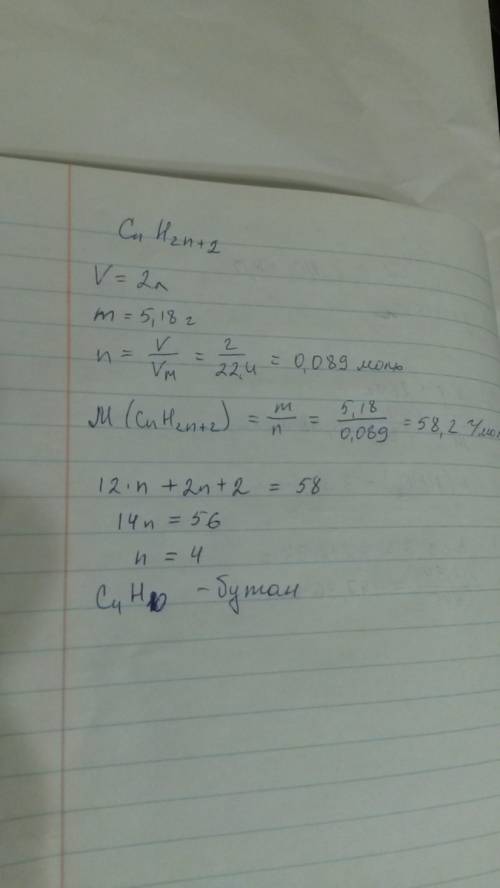 CnH2n+2
V = 2л
m = 5,18 г
n = V/VM = 2/22,4 = 0,089 моль
M (CnH2n+2) = m/n = 5,18/0,089 = 58,2 г/мол
12·n + 2n + 2 = 58
14n = 56
n = 4
C4H10 - бутан